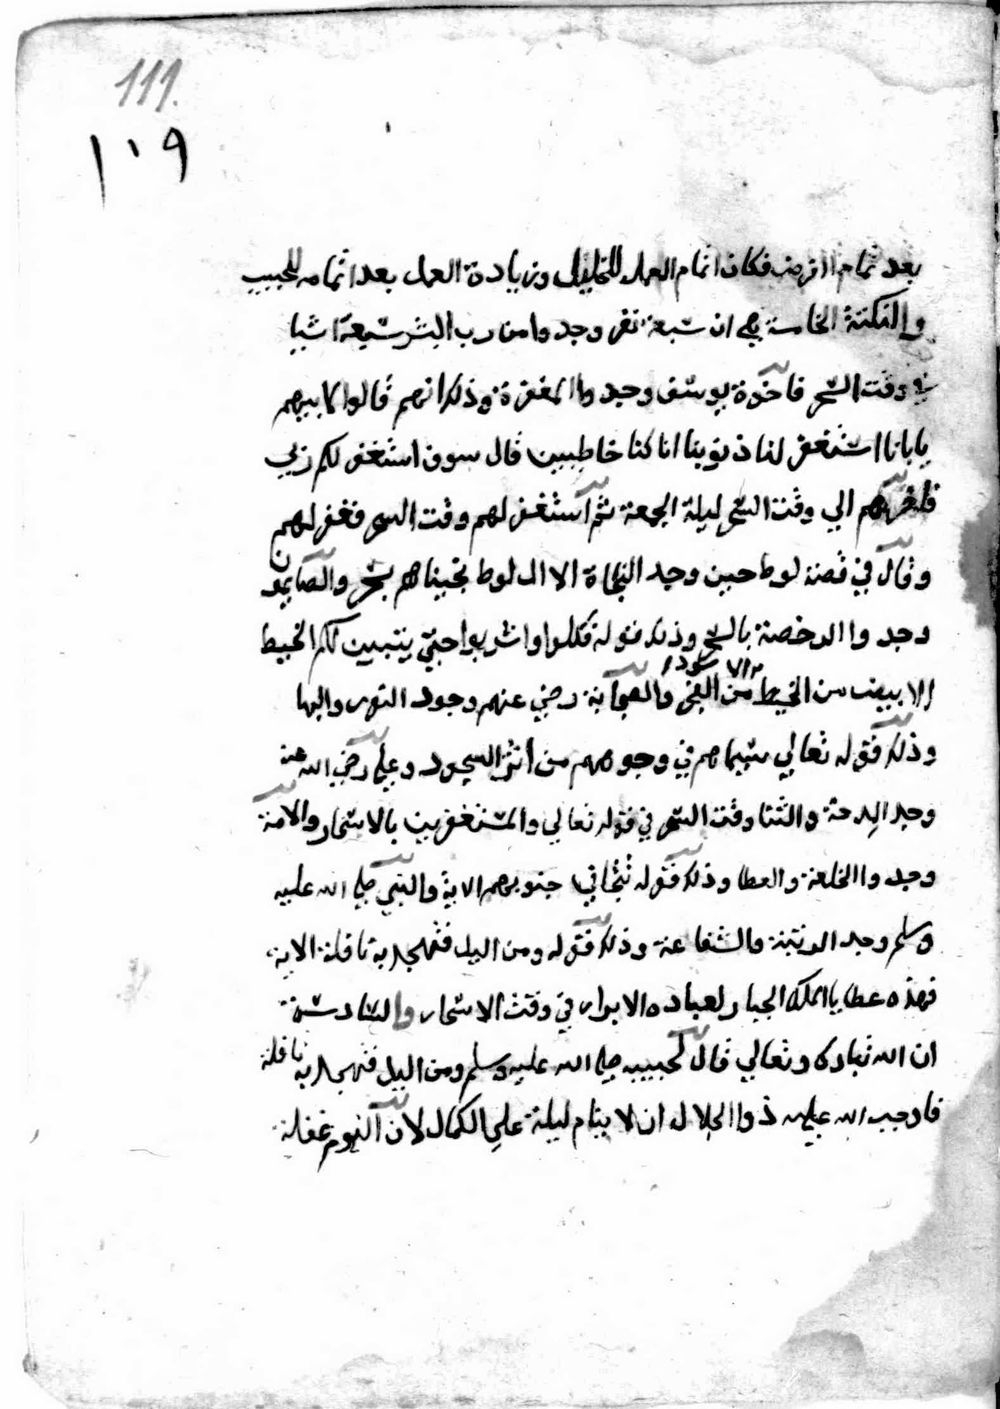 111.
١٠٩
بعد تمام الفرض فكان اتمام العمل للخليل وزيادة العمل بعد اتمامه للحبيب
والنكتة الخامسة هي ان سبعة نفر وجدوا من رب البشر سبعة اشيا
في وقت السحر فاخوة يوسف وجدوا المغفرة وذلك انهم قالوا لابيهم
يا بانا استغفر لنا ذنوبنا انا كنا خاطيين قال سوف استغفر لكم ربي
فاخرهم الي وقت السحر ليلة الجمعة ثم استغفر لهم وقت السحر فغفر لهم
وقال في قصة لوط حين وجد النجاة الا ال لوط نجيناهم بسحر والصايمون
وجدوا الرخصة بالسحر وذلك قوله فكلوا واشربوا حتي يتبين لكم الخيط
الابيض من الخيط الاسود من الفجر والصحابة رضي عنهم وجود النور والبها
وذلك قوله تعالي سيماهم في وجوههم من أثر السجود وعلي رضي الله عنه
وجد المدحة والثنا وقت السحر في قوله تعالي والمستغفرين بالاسحار والامة
وجدوا الخلعة والعطا وذلك قوله تتجافي جنوبهم الاية والنبي صلي الله عليه
وسلم وجد الرتبة والشفاعة وذلك قوله ومن اليل فتهجد به نافلة الاية،
فهذه عطايا الملك الجبار لعباده الابرار في وقت الاسحار والسادسة
ان الله تبارك وتعالي قال لحبيبه صلي الله عليه وسلم ومن اليل فتهجد به نافلة
فاوجب الله عليه ذوا الجلال ان لا ينام ليلة علي الكمال لان النوم غفلة